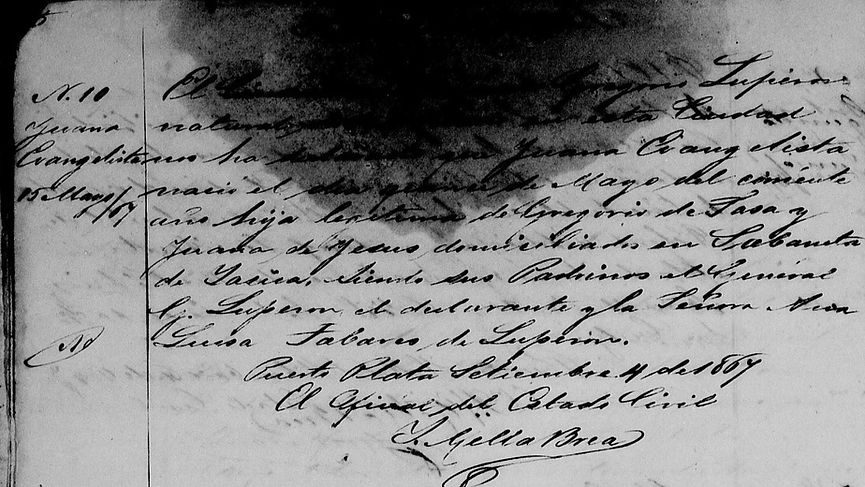 N. 10
Juana
Evangelista
15 Mayo/67
El Gregorio Luperon
natural esta Ciudad
nos ha que Juana Evangelista
nació el dia quince de Mayo del corriente
año hija lexitima de Gregorio de Tasa y
Juana de Jesus domiciliados en Sabaneta
de Yasica, siendo sus Padrinos el General
G. Luperon el declarante y la Señora Ana
Luisa Tabares de Luperon.
Puerto Plata Setiembre 4 de 1867
El Oficial del Estado Civil
J. Mella Brea